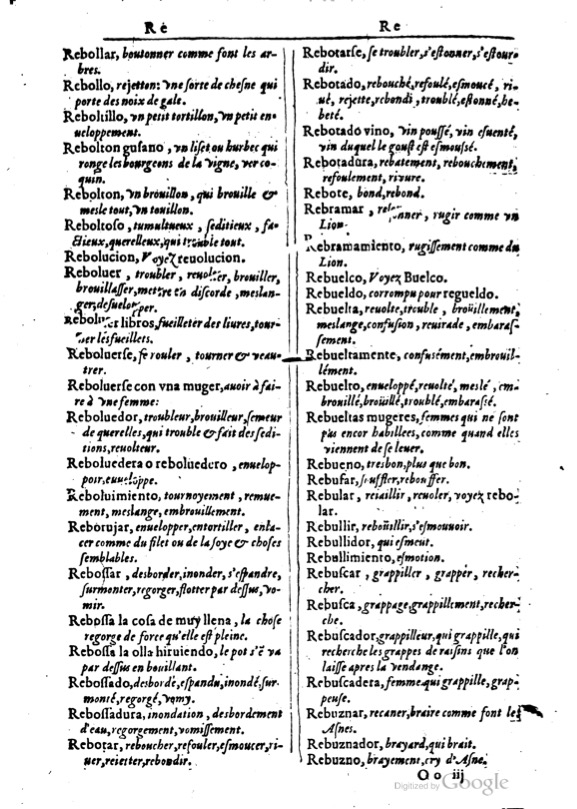 Re
Re
Rebollar, boutonner comme font les ar-
bres.
Rebollo, rejetton: vne sorte de chesne qui
porte des noix de gale.
Reboltillo, vn petit tortillon, vn petit en-
ueloppement.
Rebolton gusano, vn liset ou hurbec qui
ronge les bourgeons de la vigne, ver co-
quin.
Rebolton, vn brouillon, qui brouille &
mesle tout, vn touillon.
Reboltoso, tumultueux, seditieux, fa-
ctieux, querelleux, qui trouble tout.
Rebolucion, Voyez reuolucion.
Reboluer, troubler, brouiller,
brouillasser, mettre en discorde, meslan-
ger,
libros, fueilleter des liures, tour-
les fueillets.
Reboluerse, se rouler, tourner & veau-
trer.
Reboluerse con vna muger, auoir à fai-
re à vne femme:
Reboluedor, troubleur, brouilleur, semeur
de querelles, qui trouble & fait des sedi-
tions, reuolteur.
Reboluedera o reboluedero, enuelop-
poir, enueloppe.
Reboluimiento, tournoyement, remue-
ment, meslange, embrouillement.
Reborujar, enuelopper, entortiller, enla-
cer comme du filet ou de la soye & choses
semblables.
Rebossar, desborder, inonder, s'espandre,
surmonter, regorger, flotter par dessus, vo-
mir.
Rebossa la cosa de muy llena, la chose
regorge de force qu'elle est pleine.
Rebossa la olla hiruiendo, le pot s'ē va
par dessus en bouillant.
Rebossado, desbordé, espandu, inondé, sur-
monté, regorgé, vomy.
Rebossadura, inondation, desbordement
d'eau, regorgement, vomissement.
Rebotar, reboucher, refouler, esmoucer, ri-
uer, reietter, rebondir.
Rebotarse, se troubler, s'estonner, s'estour-
dir.
Rebotado, rebouché, refoulé, esmoucé, ri-
ué, rejetté, rebondi, troublé, estonné, he-
beté.
Rebotado vino, vin poussé, vin esuenté,
vin duquel le goust est esmoussé.
Rebotadura, rebatement, rebouchement,
refoulement, riuure.
Rebote, bond, rebond.
Rebramar, rugir comme vn
Lion.
Rebramamiento, rugissement comme du
Lion.
Rebuelco, Voyez Buelco.
Rebueldo, corrompu pour regueldo.
Rebuelta, reuolte, trouble, broüillement,
meslange, confusion, reuirade, embaras-
sement.
Rebueltamente, confusément, embrouil-
lément.
Rebuelto, enueloppé, reuolté, meslé, em-
brouillé, broüillé, troublé, embarassé.
Rebueltas mugeres, femmes qui ne sont
pas encor habillees, comme quand elles
viennent de se leuer.
Rebueno, tresbon, plus que bon.
Rebufar, souffler, rebouffer.
Rebular, reiaillir, reuoler, voyez rebo-
lar.
Rebullir, reboüillir, s'esmouuoir.
Rebullidor, qui esmeut.
Rebullimiento, esmotion.
Rebuscar, grappiller, grapper, recher-
cher.
Rebusca, grappage, grappillement, recher-
che.
Rebuscador, grappilleur, qui grappille, qui
recherche les grappes de raisins que l'on
laisse apres la vendange.
Rebuscadera, femme qui grappille, grap-
peuse.
Rebuznar, recaner, braire comme font les
Asnes.
Rebuznador, brayard, qui brait.
Rebuzno, brayement, cry d'Asne.
Oo iij
Digitized by Google